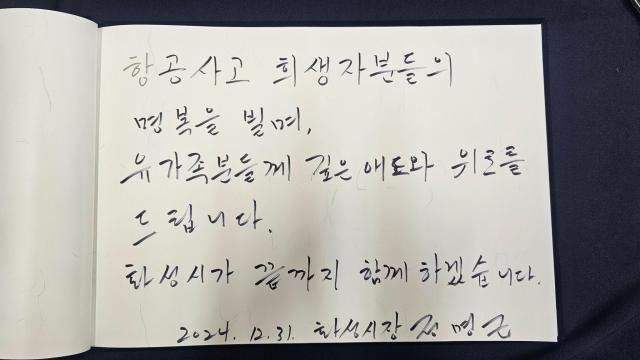 항공사고 희생자분들의
명복을 빌며,
유가족분들께 깊은 애도와 위로를
드립니다.
화성시가 끝까지 함께 하겠습니다.
2024. 12. 31. 화성시장 정명근